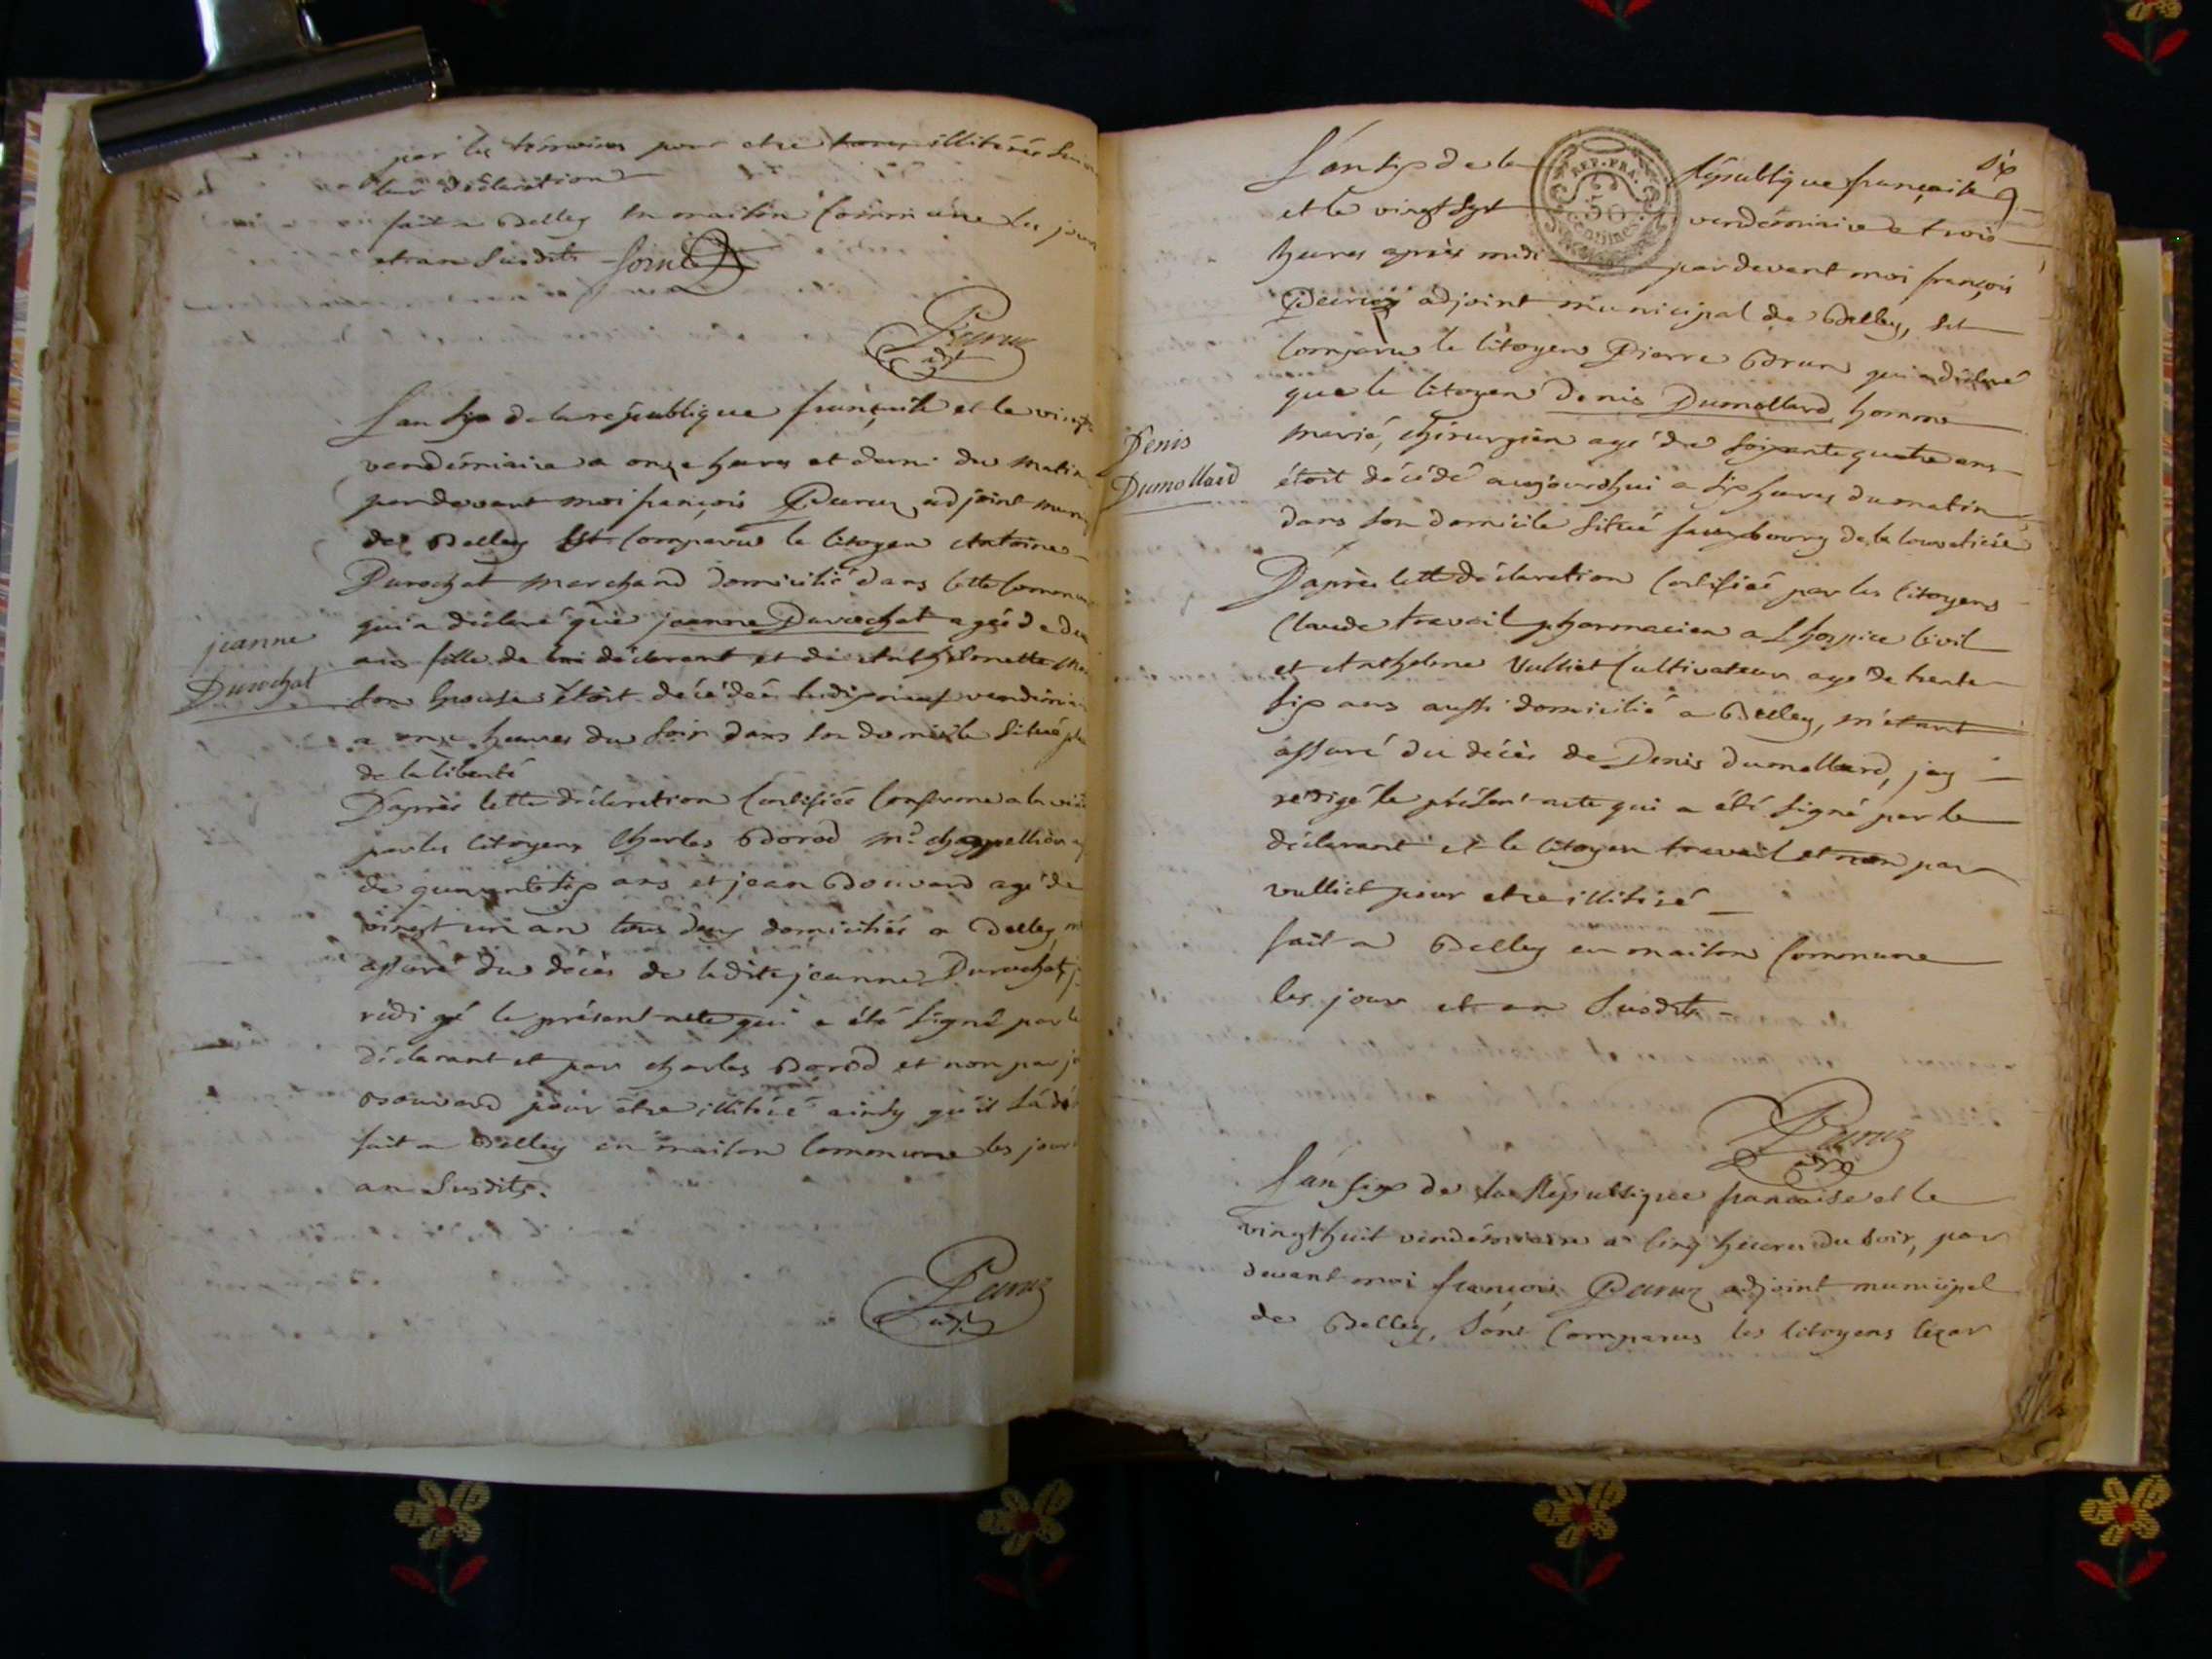 par les témoins pour etre tous illitérés suivant
leur déclaration
fait a Belley en maison Commune les jour
et an susdits
Peruz
adjt
L'an six de la république française et le vingt
vendémiaire a onze heures et demi du matin
pardevant moi françois Peruz adjoint muni
de Belley Est Comparu le Citoyen Antoine
Durochat marchand domicilié dans cette Commune
qui a déclaré que jeanne Durochat agée de deux
jeanne
Durochat
ans fille de lui déclarant et de Anthelmette
son Epouse étoit décédée le dixneuf vendémiaire
a onze heures du soir dans son domicile situé place
de la liberté
D'après cette déclaration Certifiée Conforme a la vérité
par les Citoyens Charles Borod md. chappellier
de quarante six ans et jean Bouvard agé de
vingt un an tous deux domiciliés a Belley
assuré du décès de ladite jeanne Durochat, j
rédigé le présent acte qui a été signé par le
déclarant et par charles Borod et non par j
Bouvard pour être illitéré ainsy qu'il l'a dé
fait a Belley en maison Commune les jour
an susdits.
Peruz
adjt
six
L'an six de la République française
REP. FRA.
50
centimes
et le vingt sept vendémiaire a trois
heures après midi pardevant moi françois
Peruz adjoint municipal de Belley, est
Comparu le Citoyen Pierre Brun qui a déclaré
que le Citoyen Denis Dumollard homme
Denis
Dumollard
marié, chirurgien agé de soixante quatre ans
étoit décédé aujourdhui a six heures du matin
dans son domicile situé fauxbourg de la
D'après cette déclaration Certifiée par les Citoyens
Claude travail pharmacien a L'hospice Civil
et Anthelme Vulliet Cultivateur agé de trente
six ans aussi domicilié a Belley, m'etant
assuré du décès de Denis dumollard, jay
redigé le présent acte qui a été signé par le
déclarant et le Citoyen travail et non par
vulliet pour etre illitéré
fait a Belley en maison Commune
les jour et an susdits
Peruz
adjt
L'an six de la République française et le
vingt huit vendémiaire a Cinq heures du soir, par
devant moi françois Peruz adjoint municipal
de Belley, sont Comparus les Citoyens